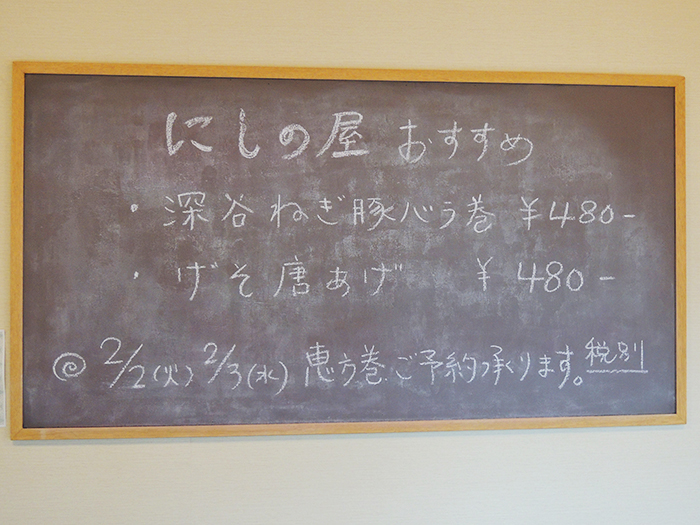 にしの屋 おすすめ
・深谷ねぎ豚バラ巻 ¥480-
・げそ唐あげ ¥480-
◎2/2(火)2/3(水)恵方巻ご予約承ります。税別